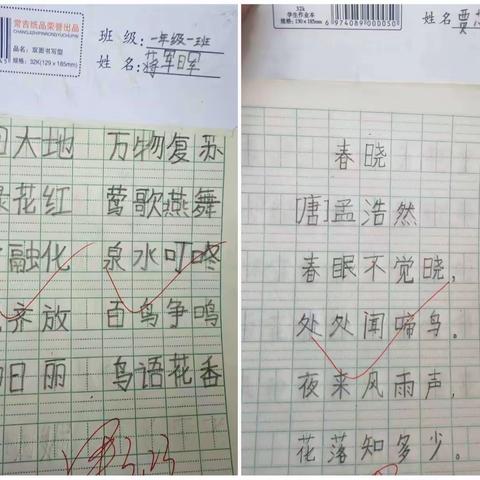 常吉纸品荣誉出品
CHANGJIZHIPINRONGYUCHUPIN
品名:双面书写型
规格:32K(129×185mm)
班级:一年级一班
姓名:
回大地 万物复苏
绿花红 莺歌燕舞
融化 泉水叮咚
齐放 百鸟争鸣
和日丽 鸟语花香
3.23
32k
学生作业本
规格:130×185mm
6974089000050
姓名 贾
春晓
[唐]孟浩然
春眠不觉晓,
处处闻啼鸟。
夜来风雨声,
花落知多少。